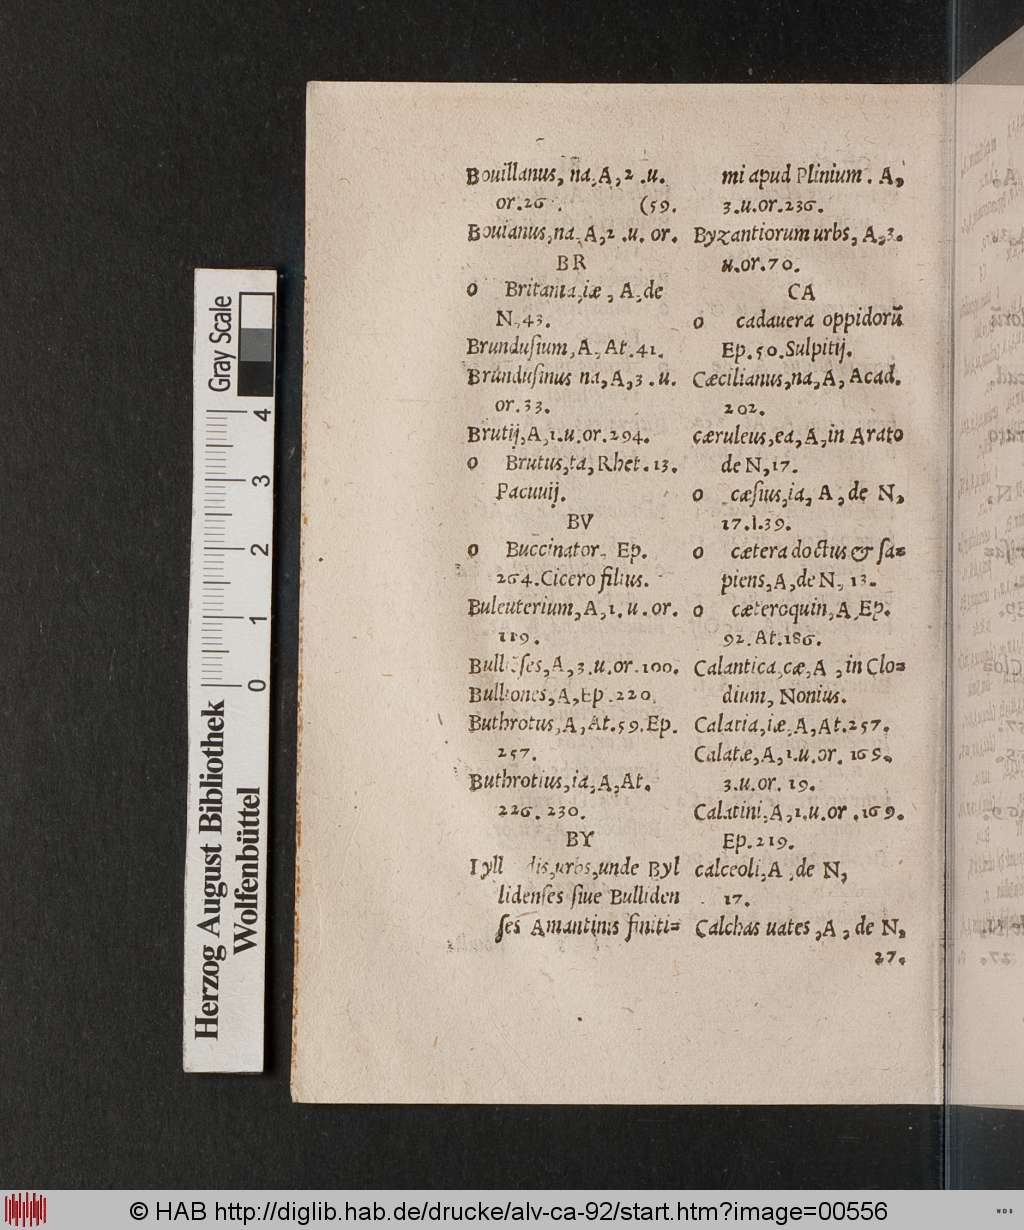 Bouillanus, na, A, 2.u.
or.26. (59.
Bouianus, na, A, 2.u. or.
BR
o Britania, iæ, A, de
N, 43.
Brunduſium, A, At.41.
Brunduſinus na, A, 3.u.
or.33.
Brutij, A, 1.u.or.294.
o Brutus, ta, Rhet.13.
Pacuuij.
BV
o Buccinator, Ep.
264. Cicero filius.
Buleuterium, A, 1.u.or.
119.
A, 3.u.or.100.
Bulliones, A, Ep.220.
Buthrotus, A, At.59. Ep.
257.
Buthrotius, ia, A, At.
226.230.
BY
urbs, unde Byl
lidenſes ſiue Bulliden
ſes Amantinis finiti=
mi apud Plinium. A,
3.u.or.236.
Byzantiorum urbs, A, 3.
u.or.70.
CA
o cadauera oppidorū
Ep.50. Sulpitij.
Cæcilianus, na, A, Acad.
202.
cæruleus, ea, A, in Arato
de N, 17.
o cæſius, ia, A, de N,
17.l.39.
o cætera doctus & ſa=
piens, A, de N, 13.
o cæteroquin, A, Ep.
92. At.186.
Calantica, cæ, A, in Clo=
dium, Nonius.
Calatia, iæ, A, At.257.
Calatæ, A, 1.u.or. 169,
3.u.or. 19.
Calatini, A, 1.u.or.169.
Ep.219.
calceoli, A, de N,
17.
Calchas uates, A, de N,
27.
Gray Scale
0 1 2 3 4
Herzog August Bibliothek
Wolfenbüttel
© HAB http://diglib.hab.de/drucke/alv-ca-92/start.htm?image=00556